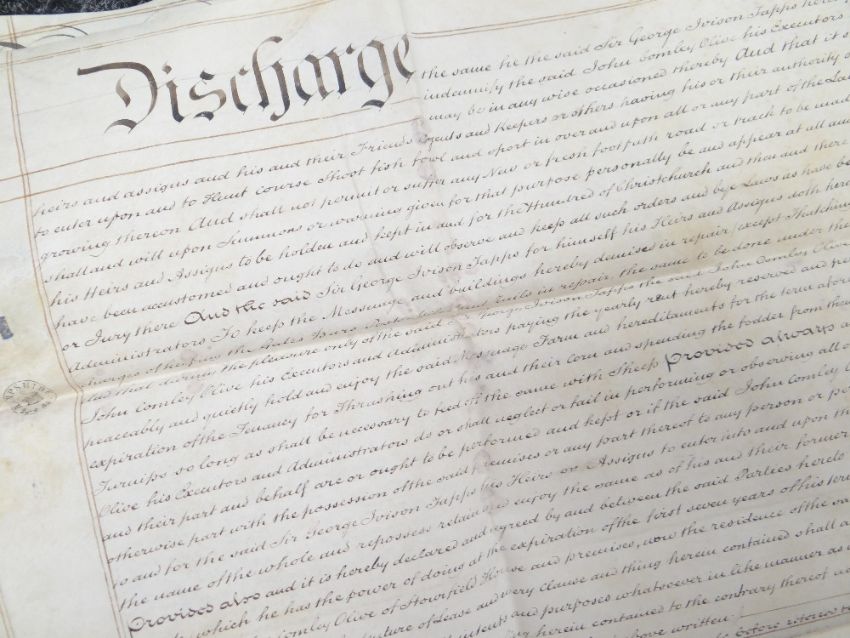 Discharge
the same he the said Sir George Ivison Tapps
indemnify the said John Comley Olive his Executors
may be in any wise occasioned thereby And that it s
heirs and assigns and his and their Friends Agents and Keepers or others having his or their authority
to enter upon and to Hunt course Shoot fish fowl and sport in over and upon all or any part of the
growing thereon And shall not permit or suffer any New or fresh footpath road or track to be mad
shall and will upon Summons or warning given for that purpose personally be and appear at all
his Heirs and Assigns to be holden and kept in and for the Hundred of Christchurch and then and there
have been accustomed and ought to do and will observe and keep all such orders and bye Laws as have be
or Jury there And the said Sir George Ivison Tapps for himself his Heirs and Assigns doth here
Administrators To keep the Messuage and buildings hereby demised in repair (except Thatching
in repair the same to be done under the
and that during the pleasure only of the said George Ivison Tapps the said John Comley Olive
John Comley Olive his Executors and Administrators paying the yearly rent hereby reserved and
peaceably and quietly hold and enjoy the said Messuage Farm and hereditaments for the term
expiration of the Tenancy for Thrashing out his and their Corn and spending the fodder from
Turnips so long as shall be necessary to feed off the same with Sheep Provided always
Olive his Executors and Administrators do or shall neglect or fail in performing or observing all o
and their part and behalf are or ought to be performed and kept or if the said John Comley
otherwise part with the possession of the said premises or any part thereof to any person or pe
to and for the said Sir George Ivison Tapps his Heirs or Assigns to enter into and upon the
the name of the whole and repossess retain and enjoy the same as of his and their former
Provided also and it is hereby declared and agreed by and between the said Parties hereto
which he has the power of doing at the expiration of the first seven years of his term
Comley Olive of Stourfield House and premises, now the residence of the sa
Lease and every Clause and thing herein contained shall
intents and purposes whatsoever in like manner as
herein contained to the contrary thereof
above written